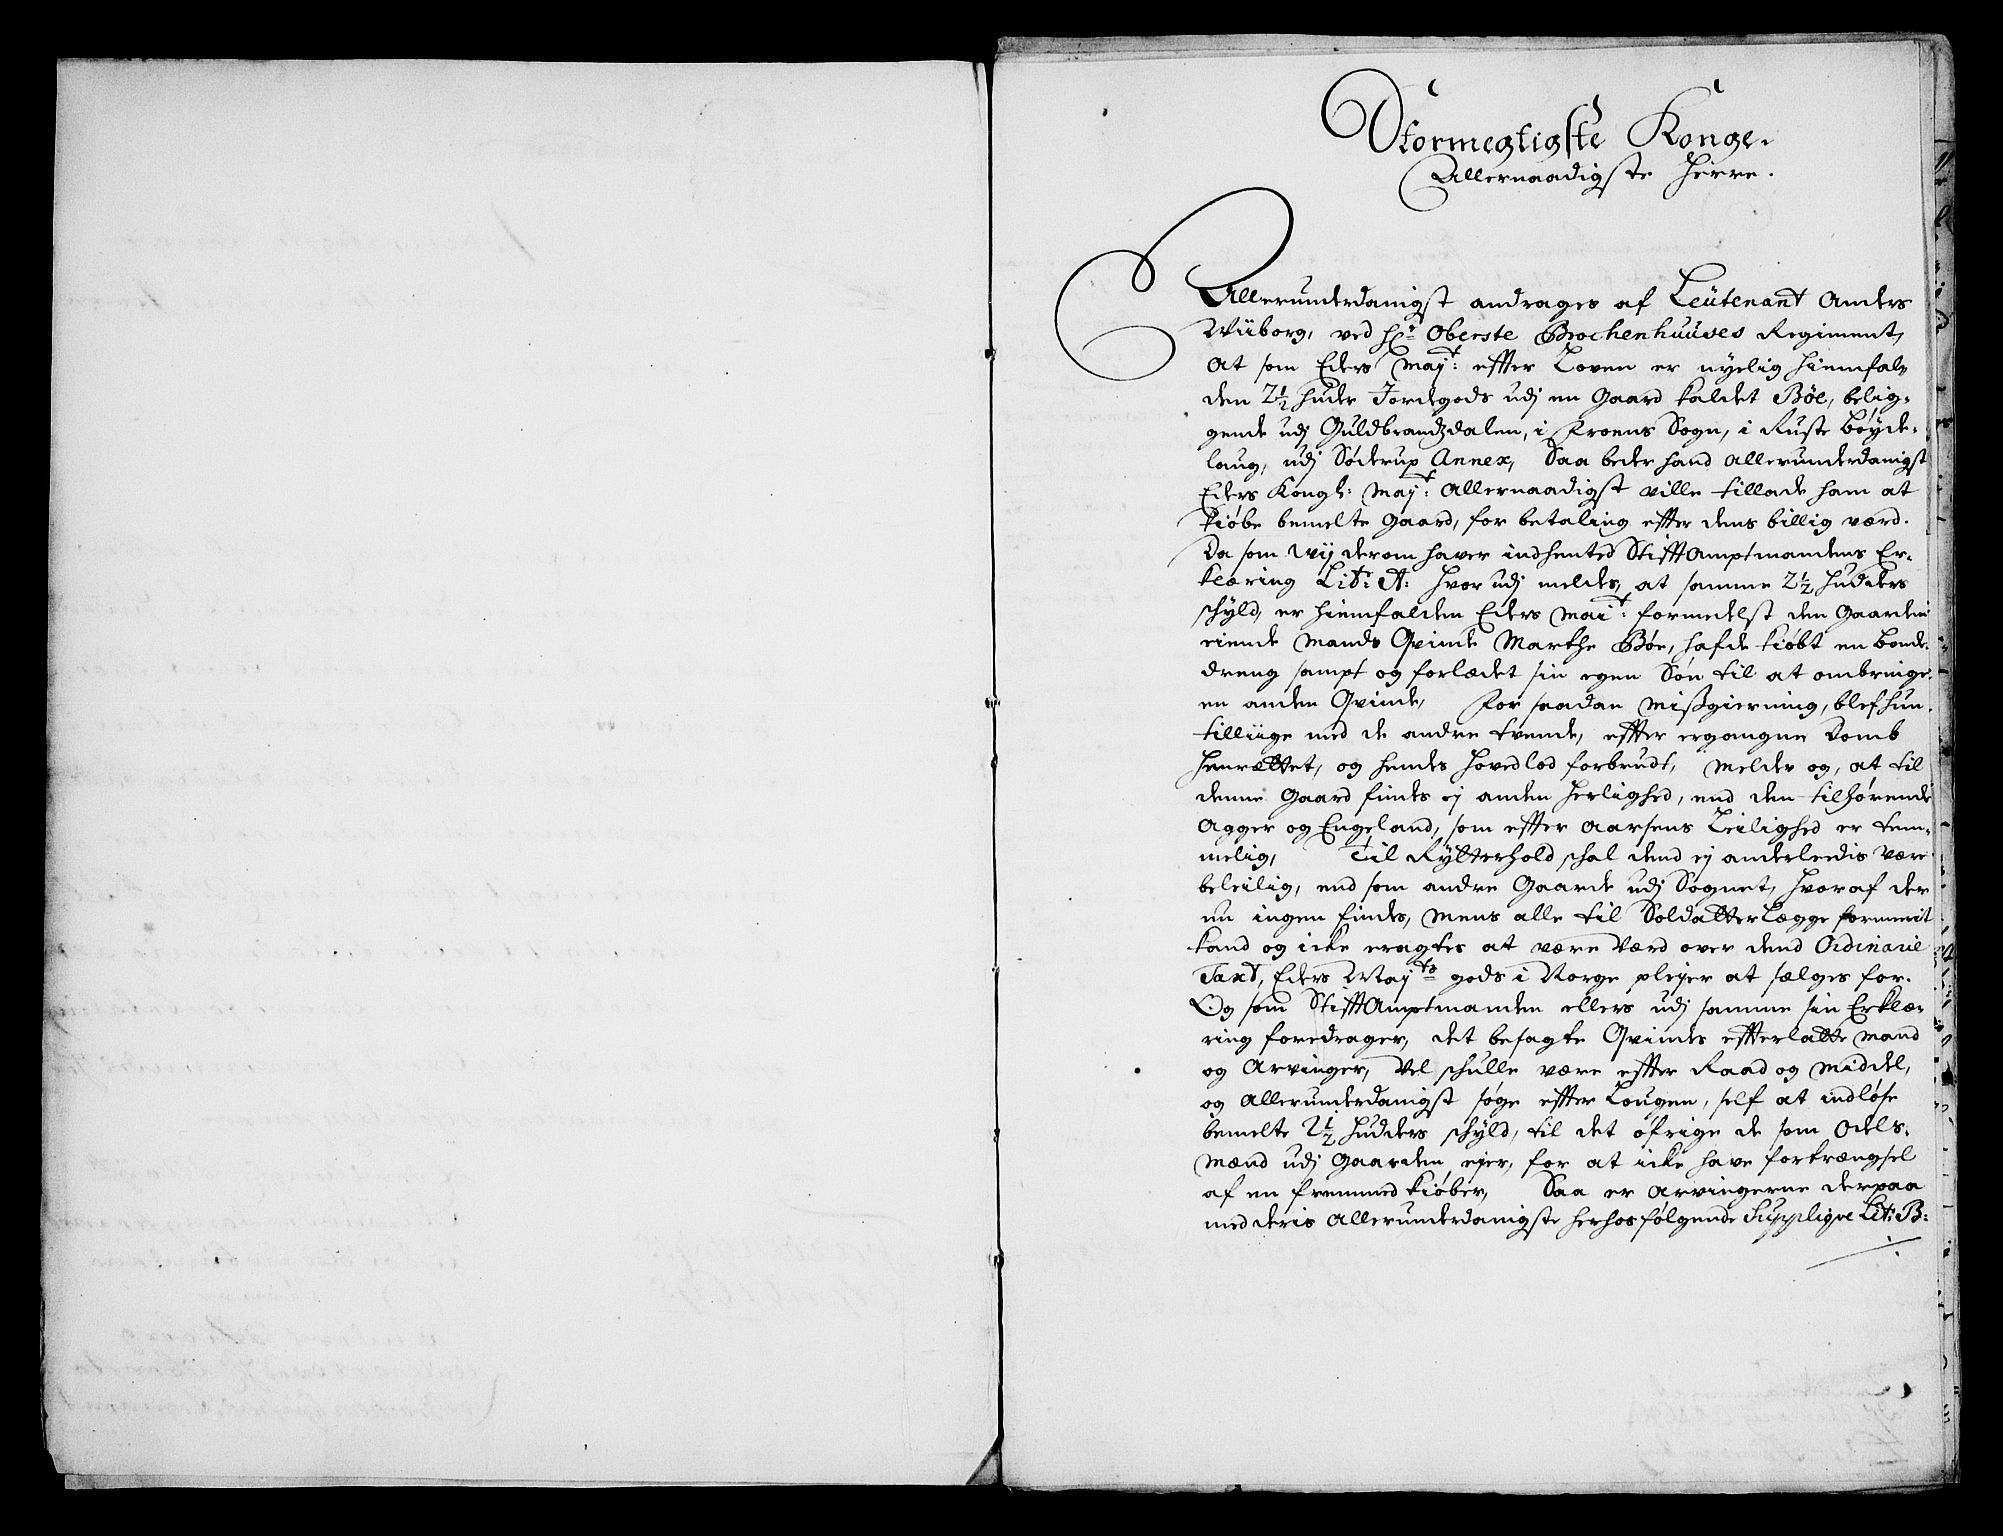 Stormegtigste Konge.
Allernaadigste Herre.
Allerunderdanigst andrages af Leütenant Anders
Wiiborg, ved Hr Oberste Brochenhuuses Regiment,
At som Eders Mayt: effter Loven er nyelig hiemfal-
den 2½ huder Jordegods udj en Gaard kaldet Böe, belig-
gende udj Guldbrandzdalen, i Froens Sogn, i Ruste böyde-
laug, udj Söderup Annex, Saa beder hand allerunderdanigst
Eders Kongl: Mayt: Allernaadigst ville tillade ham at
kiöbe bemelte Gaard, for betaling effter dens billig værd.
Da som Wij derom haver indhented StifftAmptmandens Er-
klæring Lit: A: hvor udj meldes, at samme 2½ Hudders
schyld, er hiemfalden Eders Mait: formedelst den Gaarden
eiende Mands Qvinde Marthe Böe, hafde kiöbt en bonde-
dreng sampt og forlædet sin egen Sön til at ombringe
en anden Qvinde, For saadan Mißgierning, blef hun
tilliige med de andre tvende, effter ergangne Domb
henrættet, og hendes hovedlod forbrudt, Melder og, at til
denne Gaard findes ej anden herlighed, end den tilhørende
Agger og Engeland, som effter Aarsens Leilighed er tem-
melig, Til Rytterhold schal dend ej anderleedis være
beleilig, end som andre Gaarde udj Sognet, hvoraf der
nu ingen findes, mens alle til Soldatter Lægge formerit
kand og icke eragtes at være værd over dend Ordinarie
Taxt, Eders Mayts gods i Norge plejer at sælges for.
Og som StifftAmptmanden ellers udj samme sin Erklæ-
ring foredrager, det besagte Qvindes effterlatte Mand
og Arvinger, vel schulle være effter Raad og Middel,
og Allerunderdanigst søge effter Lougen, self at indløse
bemelte 2½ Hudders schyld, til det øfrige de som Odels-
mænd udj Gaarden ejer, for at icke have fortrængsel
af en fremmed kiøber, Saa er Arvingerne derpaa
med deris allerunderdanigste herhos følgende Suppliqve Lit: B: